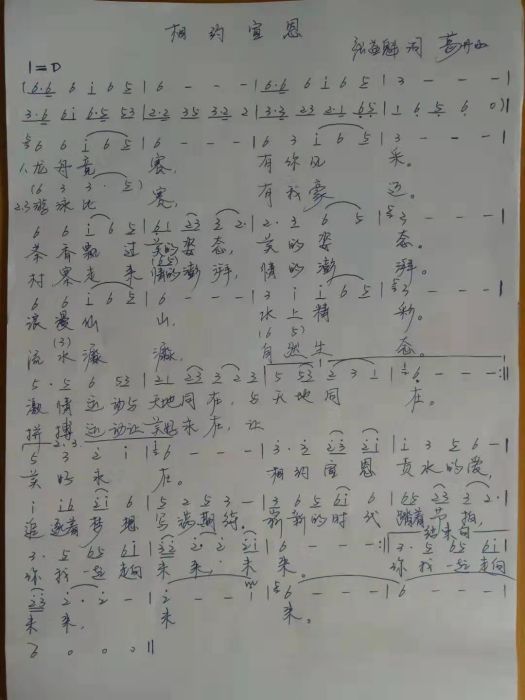 相约宣恩
词
1=D
(6·6 6 i 6 5 | 6 - - - | 6·6 6 i 6 5 | 3 - - - |
3·6 6i 6·5 53 | 2·2 35 3·2 2 | 3·2 23 2·1 6·5 | 1 6 5 6 0) |
6 6 i 6 5 | 6 - - - | 6 3 i 6 5 | 3 - - - |
1、龙舟竞 赛, 有你风 采。
(6 3 3· 5)
2.3 游泳比 赛, 有我豪 迈。
6 6 i 6 5 | 6i 23 2 2· | 2· 3 6 5 | 3 - - - |
茶香飘 过 美的姿态, 美的姿 态。
(65)
村寨走 来 情的澎湃, 情的澎 湃。
6 6 i 6 5 | 6 - - - | 3 i i 6 5 | 3 - - - |
浪漫仙 山, 水上精 彩。
(3) (6 5)
流水潺 潺, 自然生 态。
5· 5 6 53 | 21 23 3 23 | 5 53 2 3 1 | 6· - - - :||
激情运动与 天地同在, 与天地同 在。
拼搏运动让 美好来在, 让
2.3.
5 3 2 i | 6 - - - | 3· 3 23 2i | i 3 5 6 - |
美好来 在。 相约宣恩 贡水的爱,
i i6 2i 6 | 5 2 5 3 - | 3 6 5 6i 6 | 65 23 3 2· |
追逐着梦想 写满期待。 崭新的时代 踏着节拍,
结束句
3· 5 65 6i | 32 2· 2 2i | 6 - - - :|| 3· 5 65 6i |
你我一起走向 未来, 未 来。 你我一起走向
23 2· 2 - | 2 - - i | 6 - - - | 6 - - - |
未来, 未 来。
6 0 0 0 ||